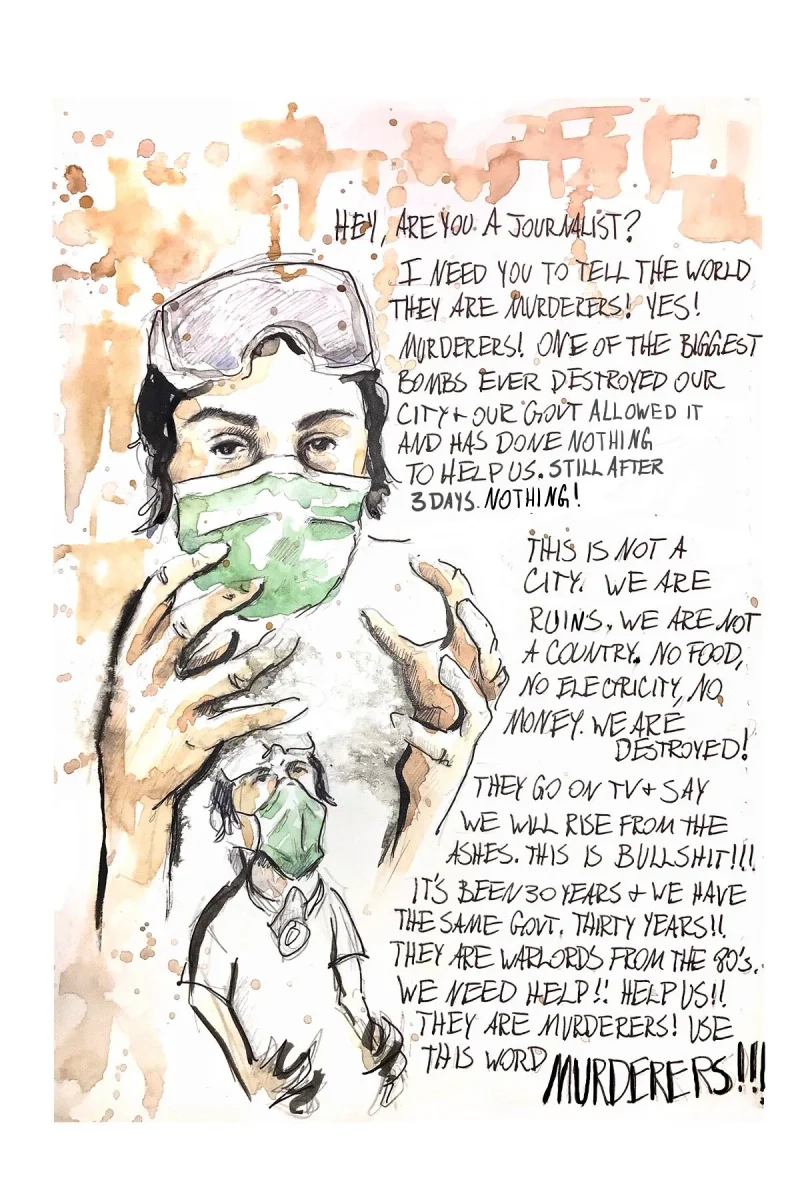 HEY, ARE YOU A JOURNALIST?
I NEED YOU TO TELL THE WORLD
THEY ARE MURDERERS! YES!
MURDERERS! ONE OF THE BIGGEST
BOMBS EVER DESTROYED OUR
CITY + OUR GOVT ALLOWED IT
AND HAS DONE NOTHING
TO HELP US. STILL AFTER
3 DAYS. NOTHING!
THIS IS NOT A
CITY. WE ARE
RUINS. WE ARE NOT
A COUNTRY. NO FOOD,
NO ELECTRICITY, NO
MONEY. WE ARE
DESTROYED!
THEY GO ON TV + SAY
WE WILL RISE FROM THE
ASHES. THIS IS BULLSHIT!!!
IT'S BEEN 30 YEARS + WE HAVE
THE SAME GOVT. THIRTY YEARS!!
THEY ARE WARLORDS FROM THE 80's.
WE NEED HELP!! HELP US!!
THEY ARE MURDERERS! USE
THIS WORD MURDERERS!!!